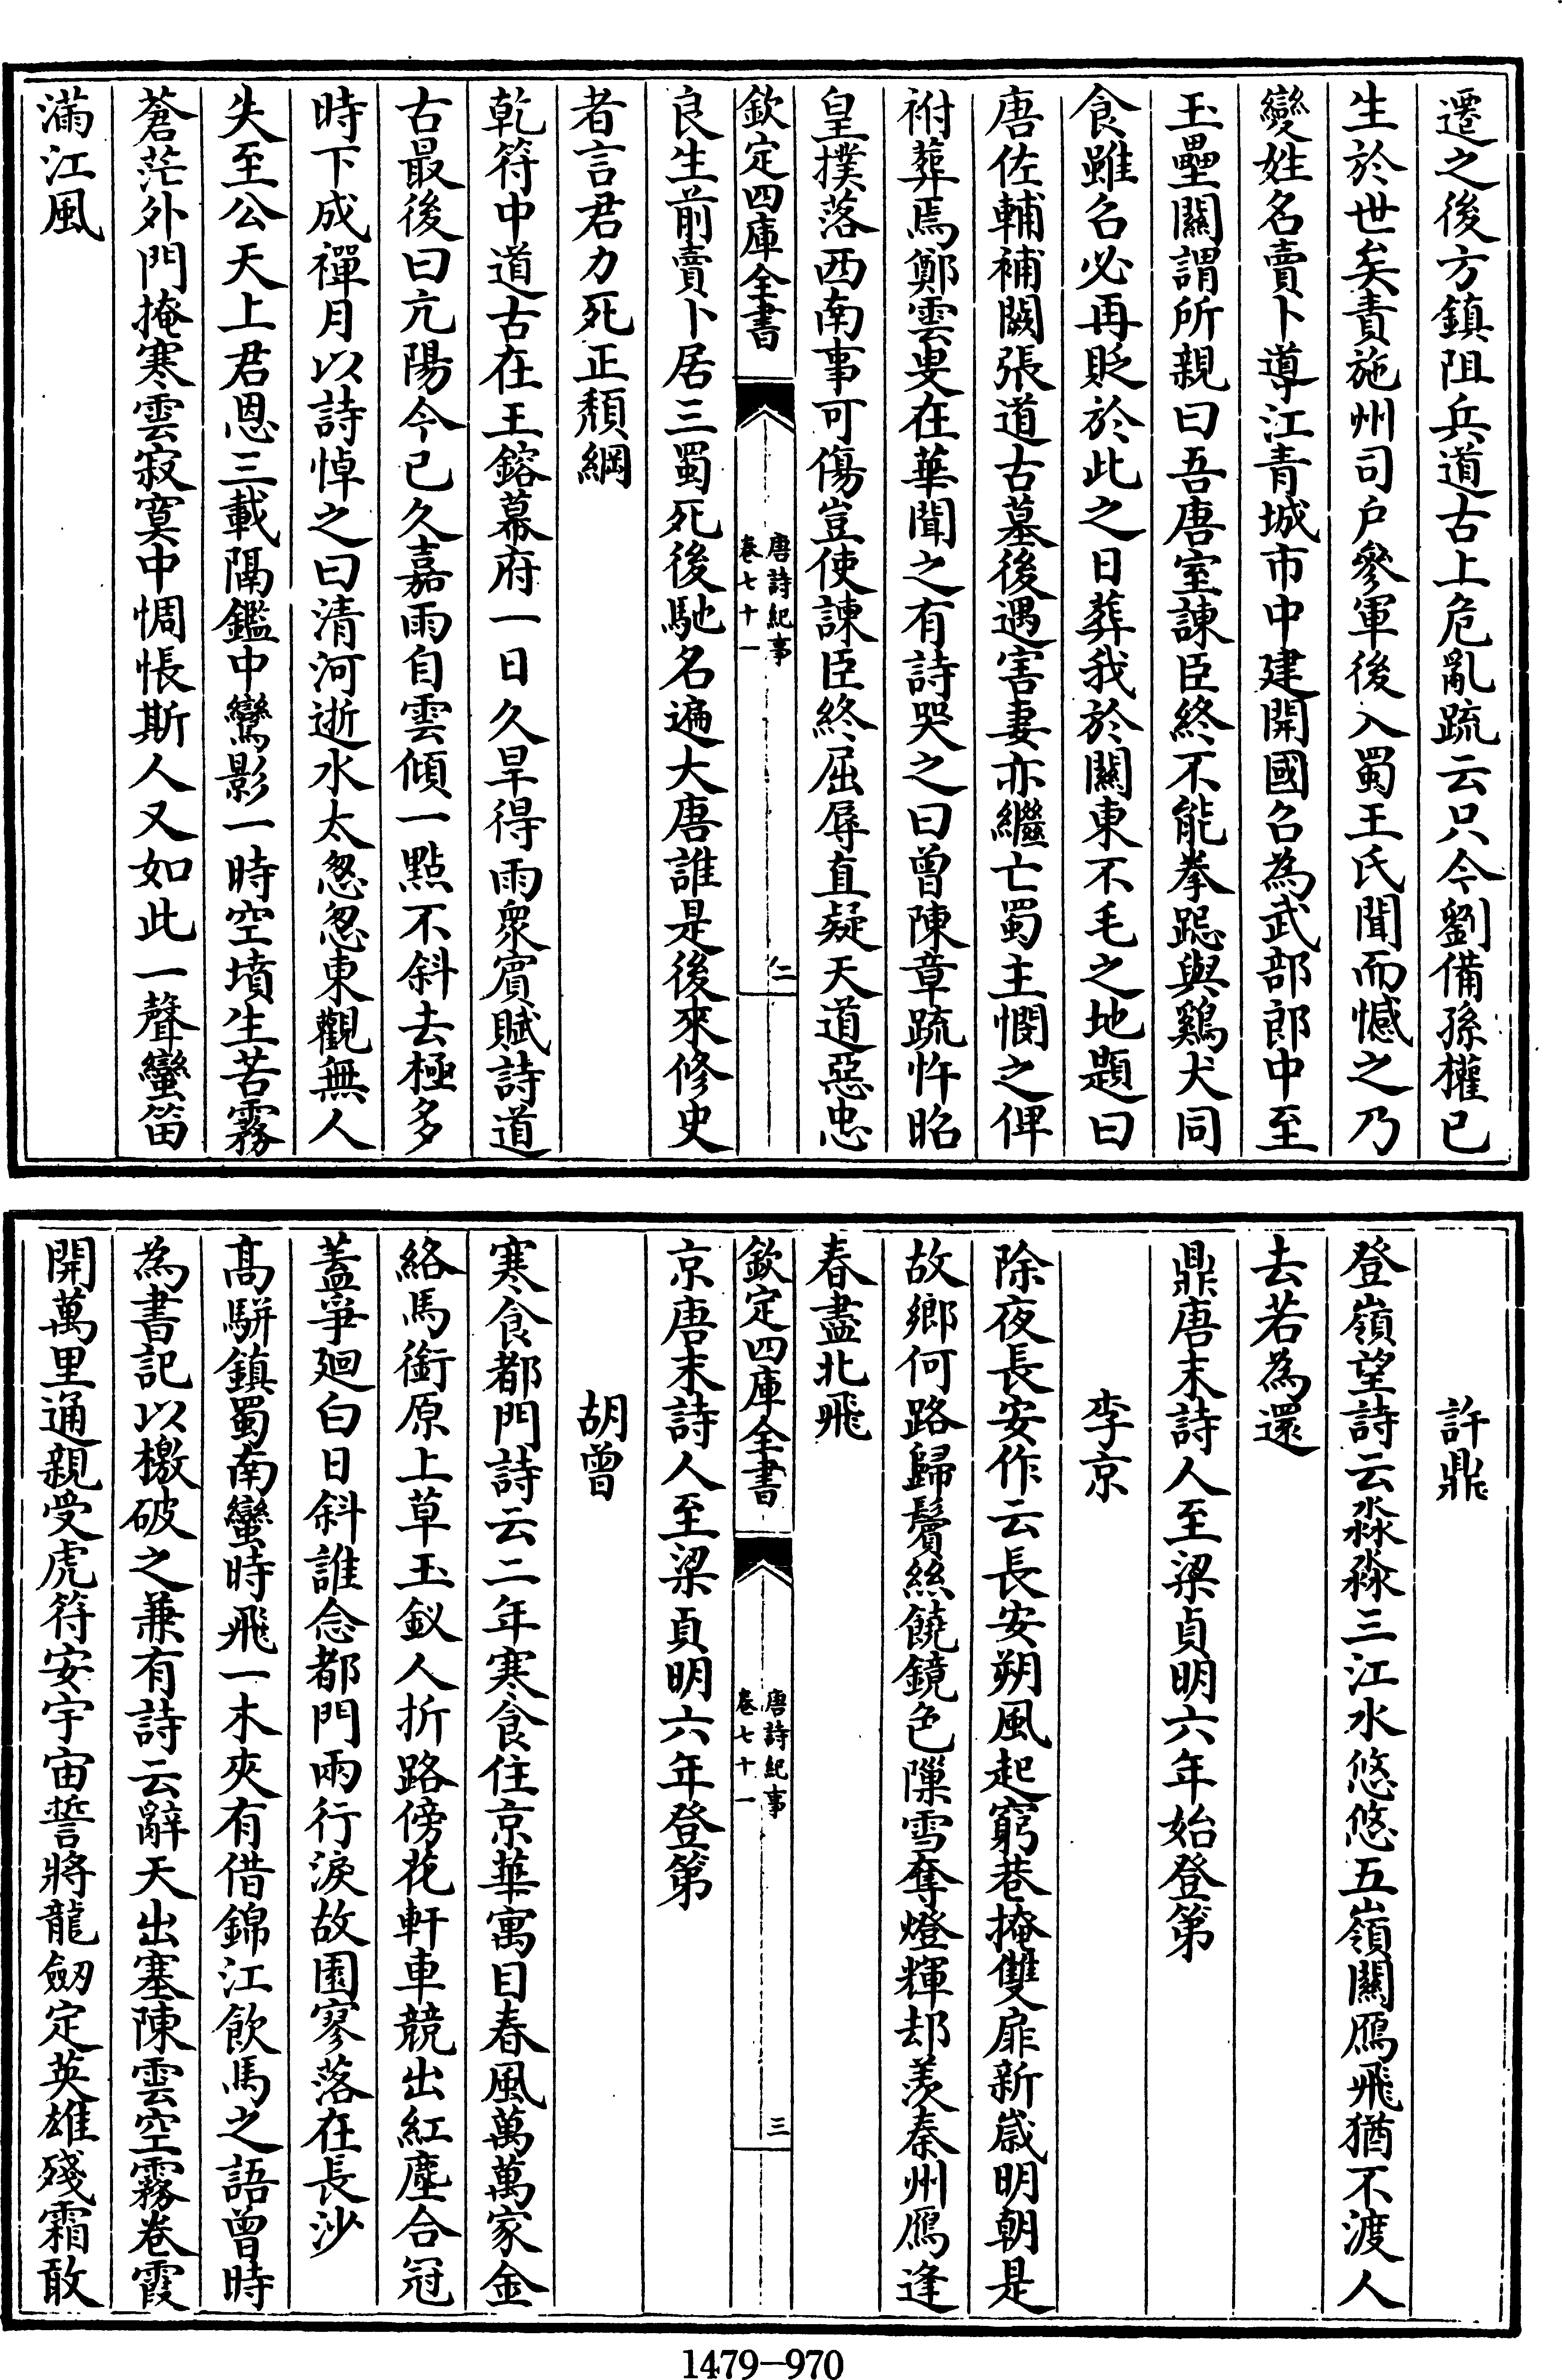 遷之後方鎮阻兵道古上危亂疏云只今劉備孫權已
生於世矣責施州司户參軍後入蜀王氏聞而憾之乃
變姓名賣卜導江青城市中建開國召為武部郎中至
玉壘關謂所親曰吾唐室諫臣終不能拳跽與鷄犬同
食雖召必再貶於此之日葬我於關東不毛之地題曰
唐佐輔補闕張道古墓後遇害妻亦繼亡蜀主憫之俾
祔葬焉鄭雲叟在華聞之有詩哭之曰曾陳章疏忤昭
皇撲落西南事可傷豈使諫臣終屈辱直疑天道惡忠
欽定四庫全書
唐詩紀事
卷七十一
二
良生前賣卜居三蜀死後馳名遍大唐誰是後來修史
者言君力死正頹綱
乾符中道古在王鎔幕府一日久旱得雨衆賓賦詩道
古最後曰亢陽今已久嘉雨自雲傾一點不斜去極多
時下成禪月以詩悼之曰清河逝水太怱怱東觀無人
失至公天上君恩三載隔鑑中鸞影一時空墳生苦霧
蒼茫外門掩寒雲寂寞中惆悵斯人又如此一聲蠻笛
滿江風
許鼎
登嶺望詩云淼淼三江水悠悠五嶺關鴈飛猶不渡人
去若為還
鼎唐末詩人至梁貞明六年始登第
李京
除夜長安作云長安朔風起窮巷掩雙扉新歲明朝是
故鄉何路歸鬢絲饒鏡色隟雪奪燈輝却羨秦州鴈逢
春盡北飛
欽定四庫全書
唐詩紀事
卷七十一
三
京唐末詩人至梁貞明六年登第
胡曾
寒食都門詩云二年寒食住京華寓目春風萬萬家金
絡馬銜原上草玉釵人折路傍花軒車競出紅塵合冠
蓋爭廻白日斜誰念都門兩行淚故園寥落在長沙
髙駢鎮蜀南蠻時飛一木夾有借錦江飲馬之語曾時
為書記以檄破之兼有詩云辭天出塞陳雲空霧卷霞
開萬里通親受虎符安宇宙誓將龍劒定英雄殘霜敢
1479-970